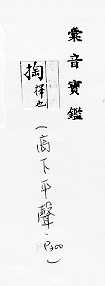 彙音寶鑑
掏 擇也
(高下平聲·P300)